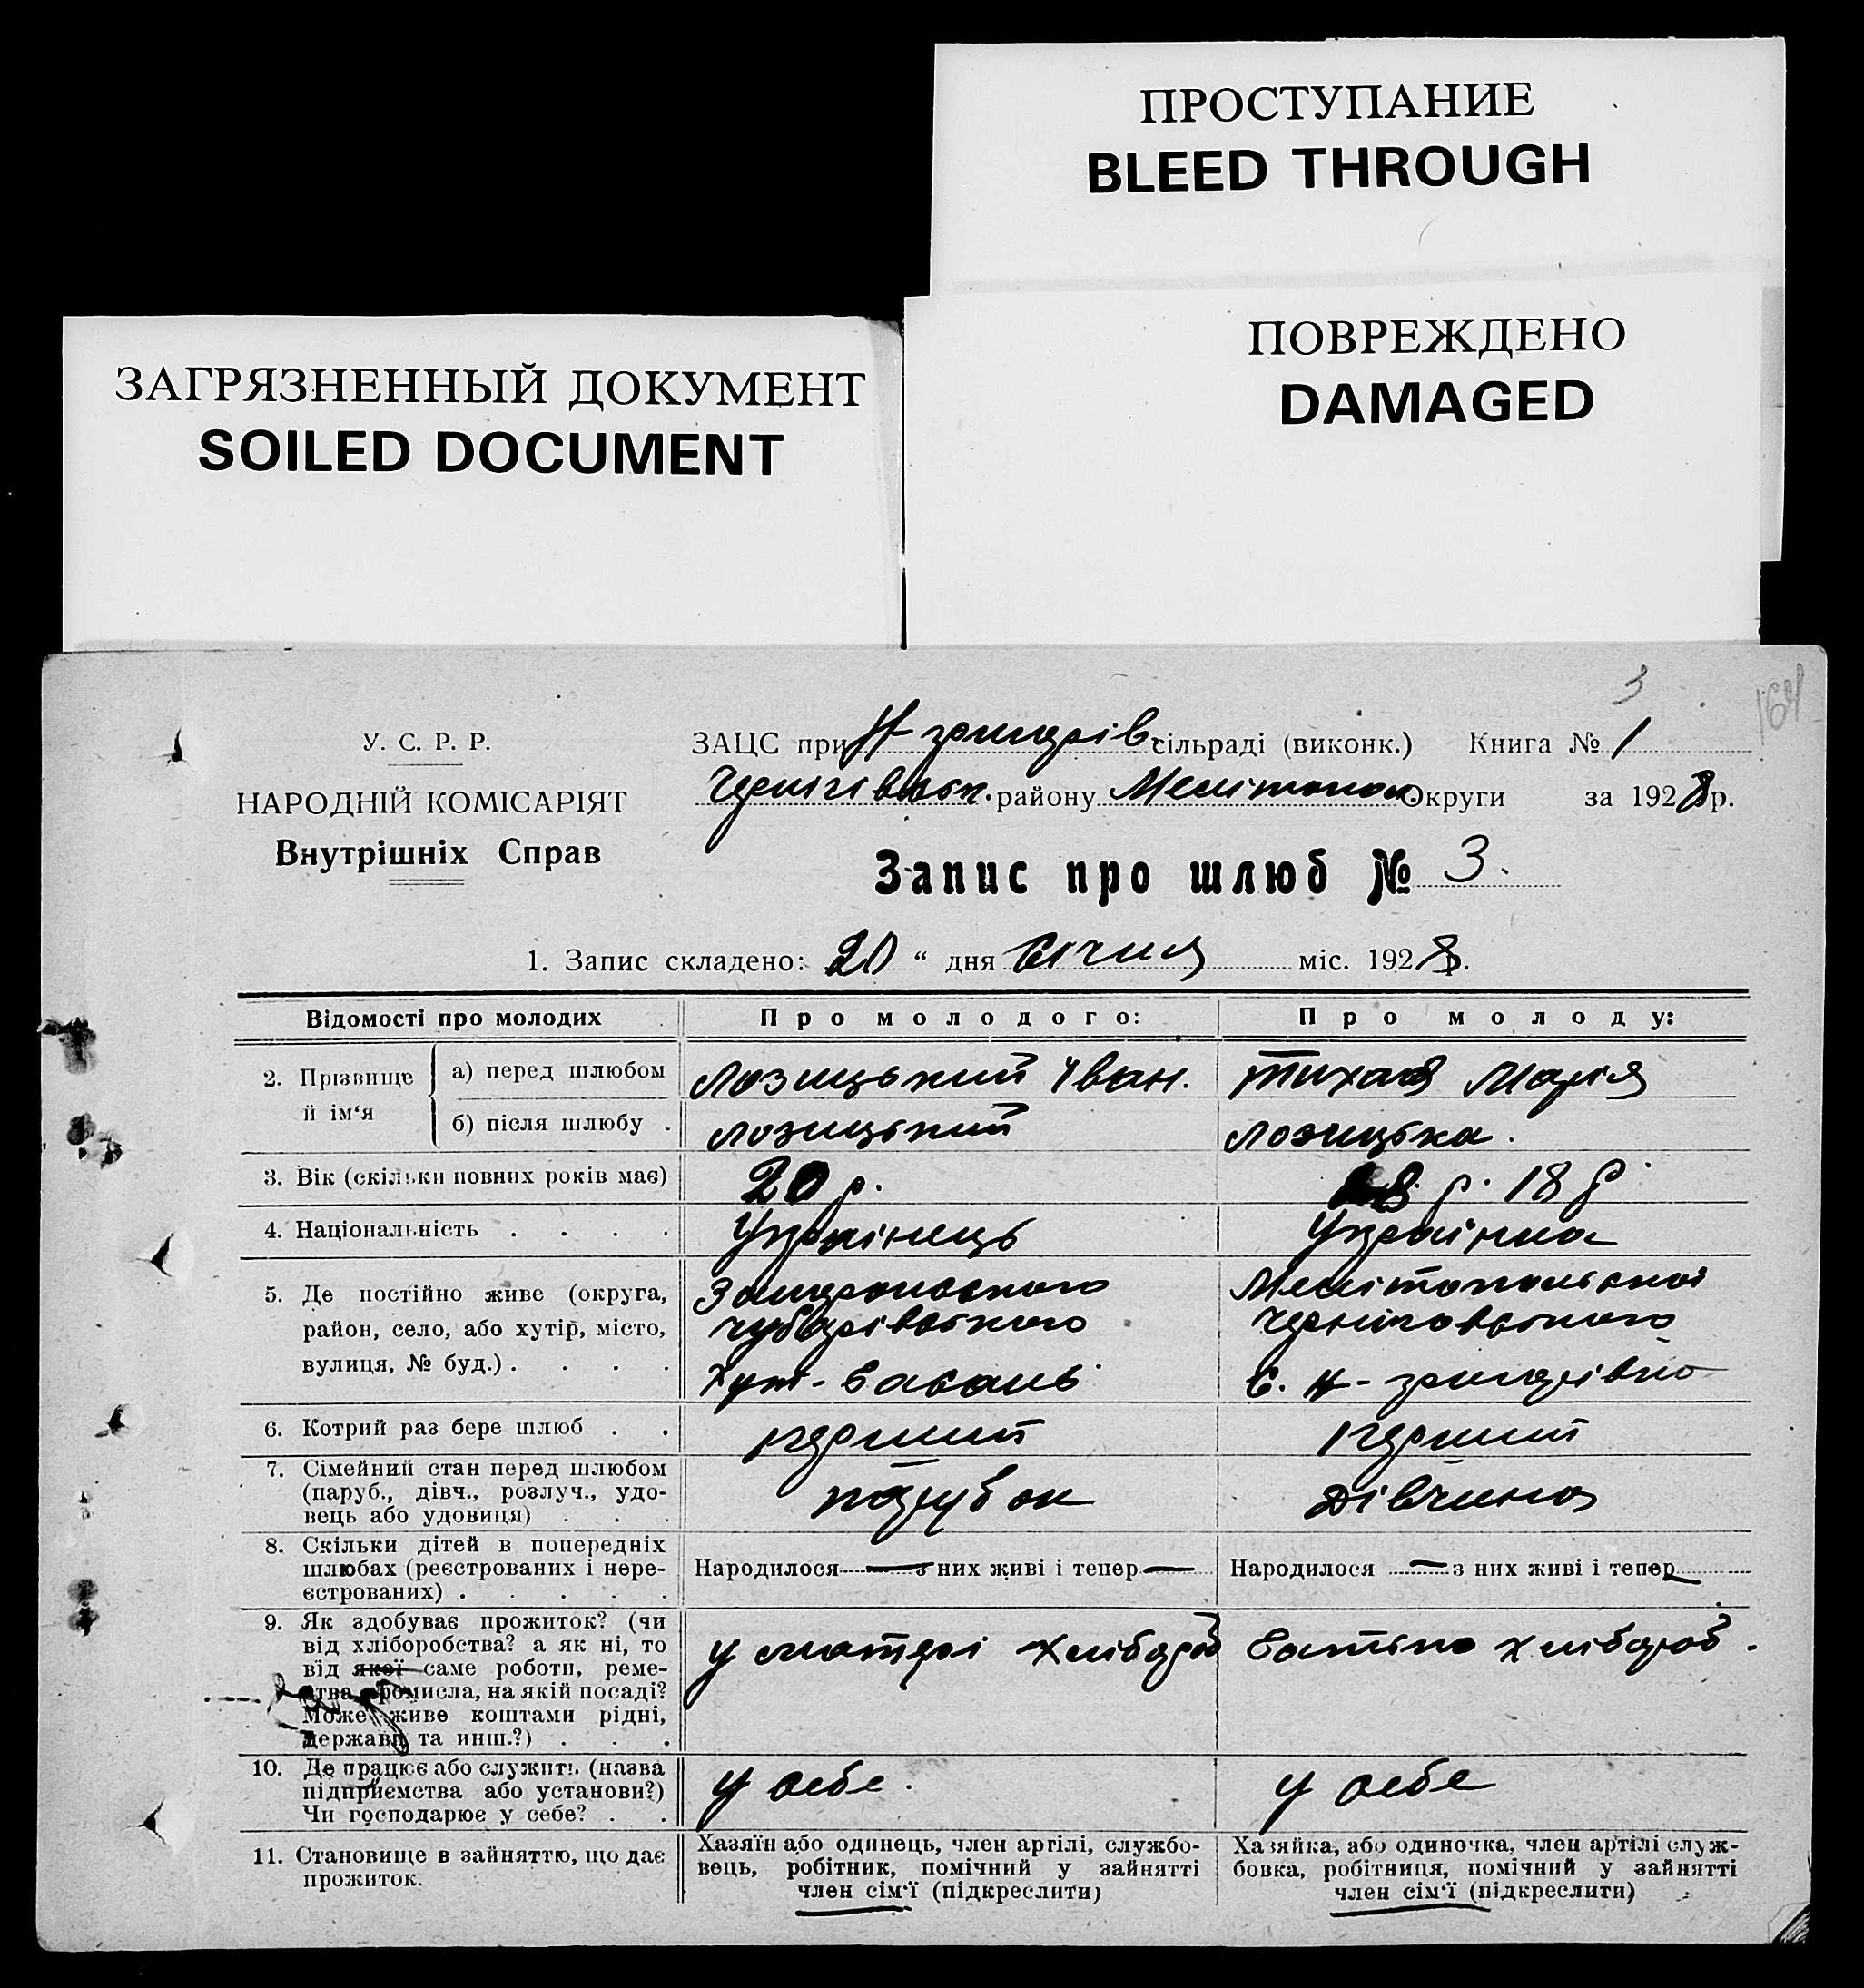 ПРОСТУПАНИЕ
BLEED THROUGH
ПОВРЕЖДЕНО
DAMAGED
ЗАГРЯЗНЕННЫЙ ДОКУМЕНТ
SOILED DOCUMENT
3
У. С. Р. Р.
НАРОДНІЙ КОМІСАРІЯТ
Внутрішніх Справ
ЗАЦС при сільраді (виконк.) Книга № 1
Чернігівськ. району Мелітопол. Округи за 1928 р.
Запис про шлюб № 3.
1. Запис складено: 20 “ дня Січня міс. 1928 р.
Відомості про молодих
Про молодого:
Про молоду:
2. Прізвище й ім‘я
а) перед шлюбом
Лозицький Іван.
Тихая Марія
б) після шлюбу .
Лозицький
Лозицька.
3. Вік (скільки повних років має)
20 р.
18 р
4. Національність . . . .
Українець
Українка
5. Де постійно живе (округа,
район, село, або хутір, місто,
вулиця, № буд.) . . . .
Чубарівського
Хут-Басань
Мелітопольської
Черніговського
6. Котрий раз бере шлюб . .
перший
перший
7. Сімейний стан перед шлюбом
(паруб., дівч., розлуч., удо-
вець або удовиця) . . .
парубок
Дівчина
8. Скільки дітей в попередніх
шлюбах (реєстрованих і нере-
єстрованих) . . . . .
Народилося — з них живі і тепер —
Народилося — з них живі і тепер —
9. Як здобуває прожиток? (чи
від хліборобства? а як ні, то
від якої саме роботи, реме-
ства промисла, на якій посаді?
Може живе коштами рідні,
держави та инш.?) . . .
у матері хлібороб
батько хлібороб.
10. Де працює або служить (назва
підприємства або установи?)
Чи господарює у себе? . .
у себе.
у себе
11. Становище в зайняттю, що дає
прожиток.
Хазяїн або одинець, член артілі, службо-
вець, робітник, помічний у зайнятті
член сім‘ї (підкреслити)
Хазяйка, або одиночка, член артілі служ-
бовка, робітниця, помічний у зайнятті
член сім‘ї (підкреслити)